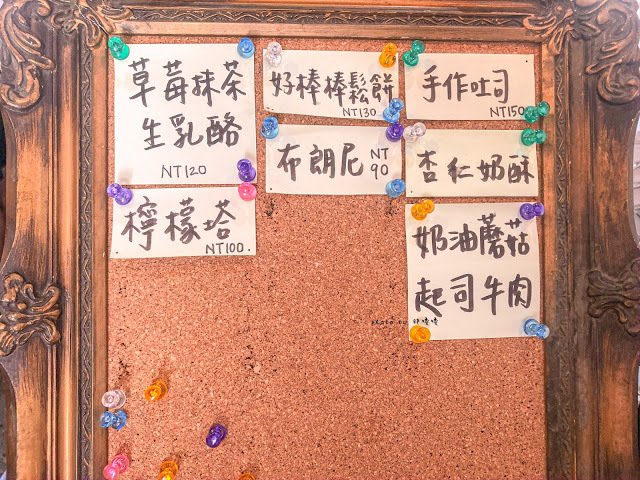 草莓抹茶
生乳酪
NT120
檸檬塔
NT100
好棒棒鬆餅
NT130
布朗尼 NT
90
手作吐司
NT150
杏仁奶酥
奶油蘑菇
起司牛肉